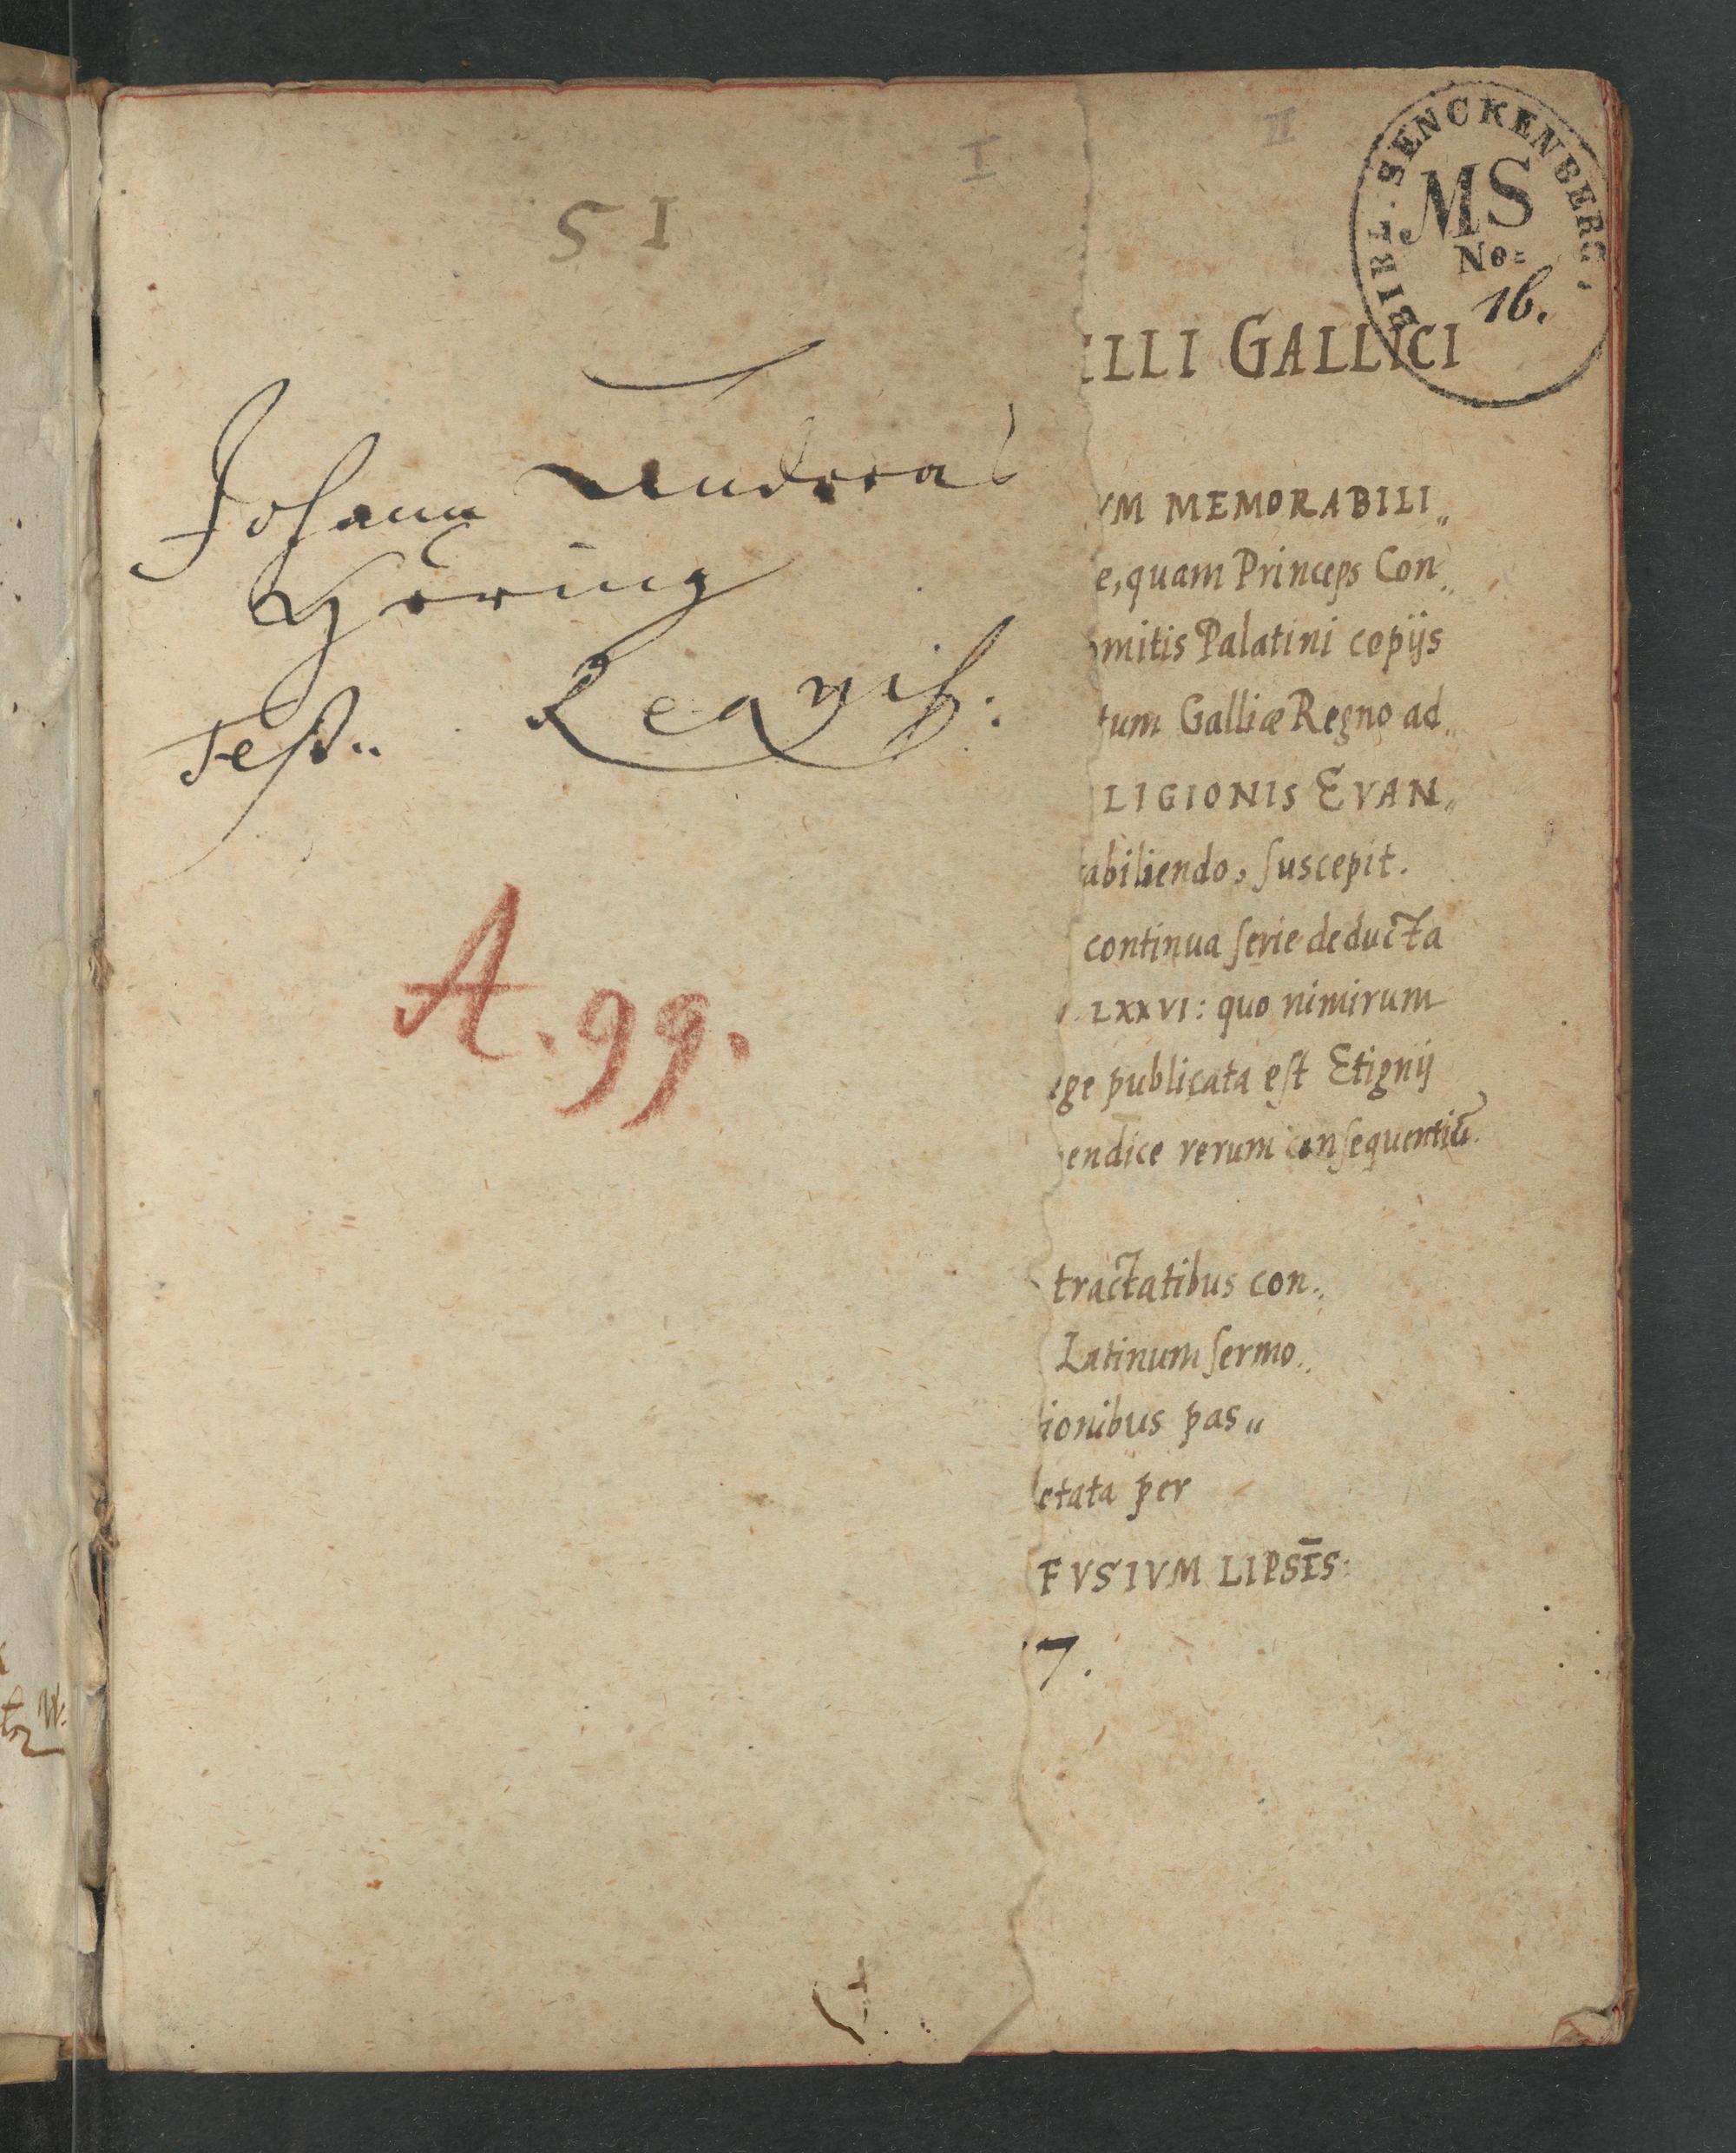 I
II
51
BIBL. SENCKENBERG.
MS
No:
16.
Johann Andreas
Höring
Test..
A. 99.
ELLI GALLICI
VM MEMORABILI„
e, quam Princeps Con„
omitis Palatini copijs
tum Galliæ Regno ad„
LIGIONIS EVAN„
abiliendo, suscepit.
continua serie deducta
LXXVI: quo nimirum
ege publicata est Etignij
endice rerum consequentiū.
tractatibus con„
Latinum sermo„
ionibus pas„
etata per
FVSIVM LIPSĒS:
7.